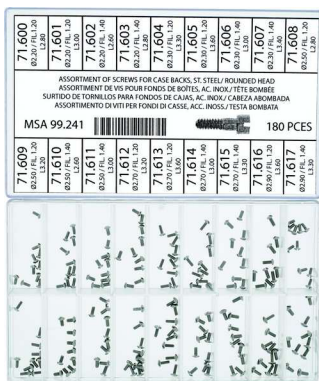 71.600
Ø2.20 / FIL. 1.20
L2.80
71.601
Ø2.20 / FIL. 1.20
L3.00
71.602
Ø2.20 / FIL. 1.40
L2.80
71.603
Ø2.20 / FIL. 1.40
L3.00
71.604
Ø2.30 / FIL. 1.20
L3.30
71.605
Ø2.30 / FIL. 1.20
L3.60
71.606
Ø2.30 / FIL. 1.40
L3.00
71.607
Ø2.30 / FIL. 1.40
L3.30
71.608
Ø2.50 / FIL. 1.20
L2.80
ASSORTMENT OF SCREWS FOR CASE BACKS, ST. STEEL/ ROUNDED HEAD
ASSORTIMENT DE VIS POUR FONDS DE BOÎTES, AC. INOX / TÊTE BOMBÉE
SURTIDO DE TORNILLOS PARA FONDOS DE CAJAS, AC. INOX / CABEZA ABOMBADA
ASSORTIMENTO DI VITI PER FONDI DI CASSE, ACC. INOSS / TESTA BOMBATA
MSA 99.241 180 PCES
71.609
Ø2.50 / FIL. 1.20
L3.20
71.610
Ø2.50 / FIL. 1.40
L2.60
71.611
Ø2.50 / FIL. 1.40
L3.00
71.612
Ø2.70 / FIL. 1.20
L3.20
71.613
Ø2.70 / FIL. 1.20
L3.60
71.614
Ø2.70 / FIL. 1.40
L3.00
71.615
Ø2.70 / FIL. 1.40
L3.30
71.616
Ø2.90 / FIL. 1.20
L3.60
71.617
Ø2.90 / FIL. 1.40
L3.30